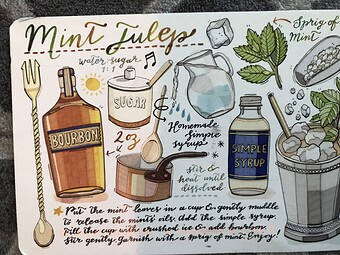 Mint Julep
Sprig of
Mint
water:sugar
1:1
SUGAR
BOURBON
2oz
Homemade
Simple
syrup
SIMPLE
SYRUP
stir &
heat until
dissolved
Put the mint leaves in a cup & gently muddle
to release the mint's oils. Add the simple syrup.
Fill the cup with crushed ice & add bourbon.
Stir gently. Garnish with a sprig of mint. Enjoy!